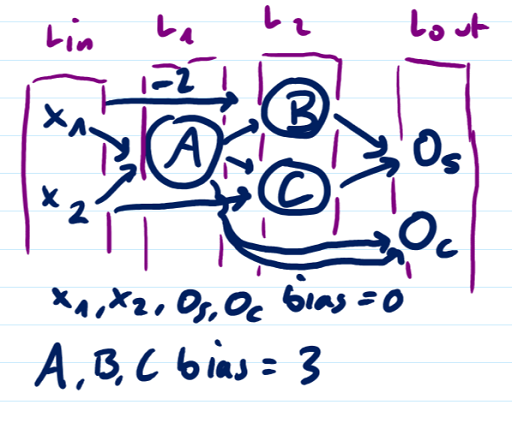 Lin L1 L2 Lout
-2
x1 A B C Os
x2 Oc
x1, x2, Os, Oc bias = 0
A, B, C bias = 3